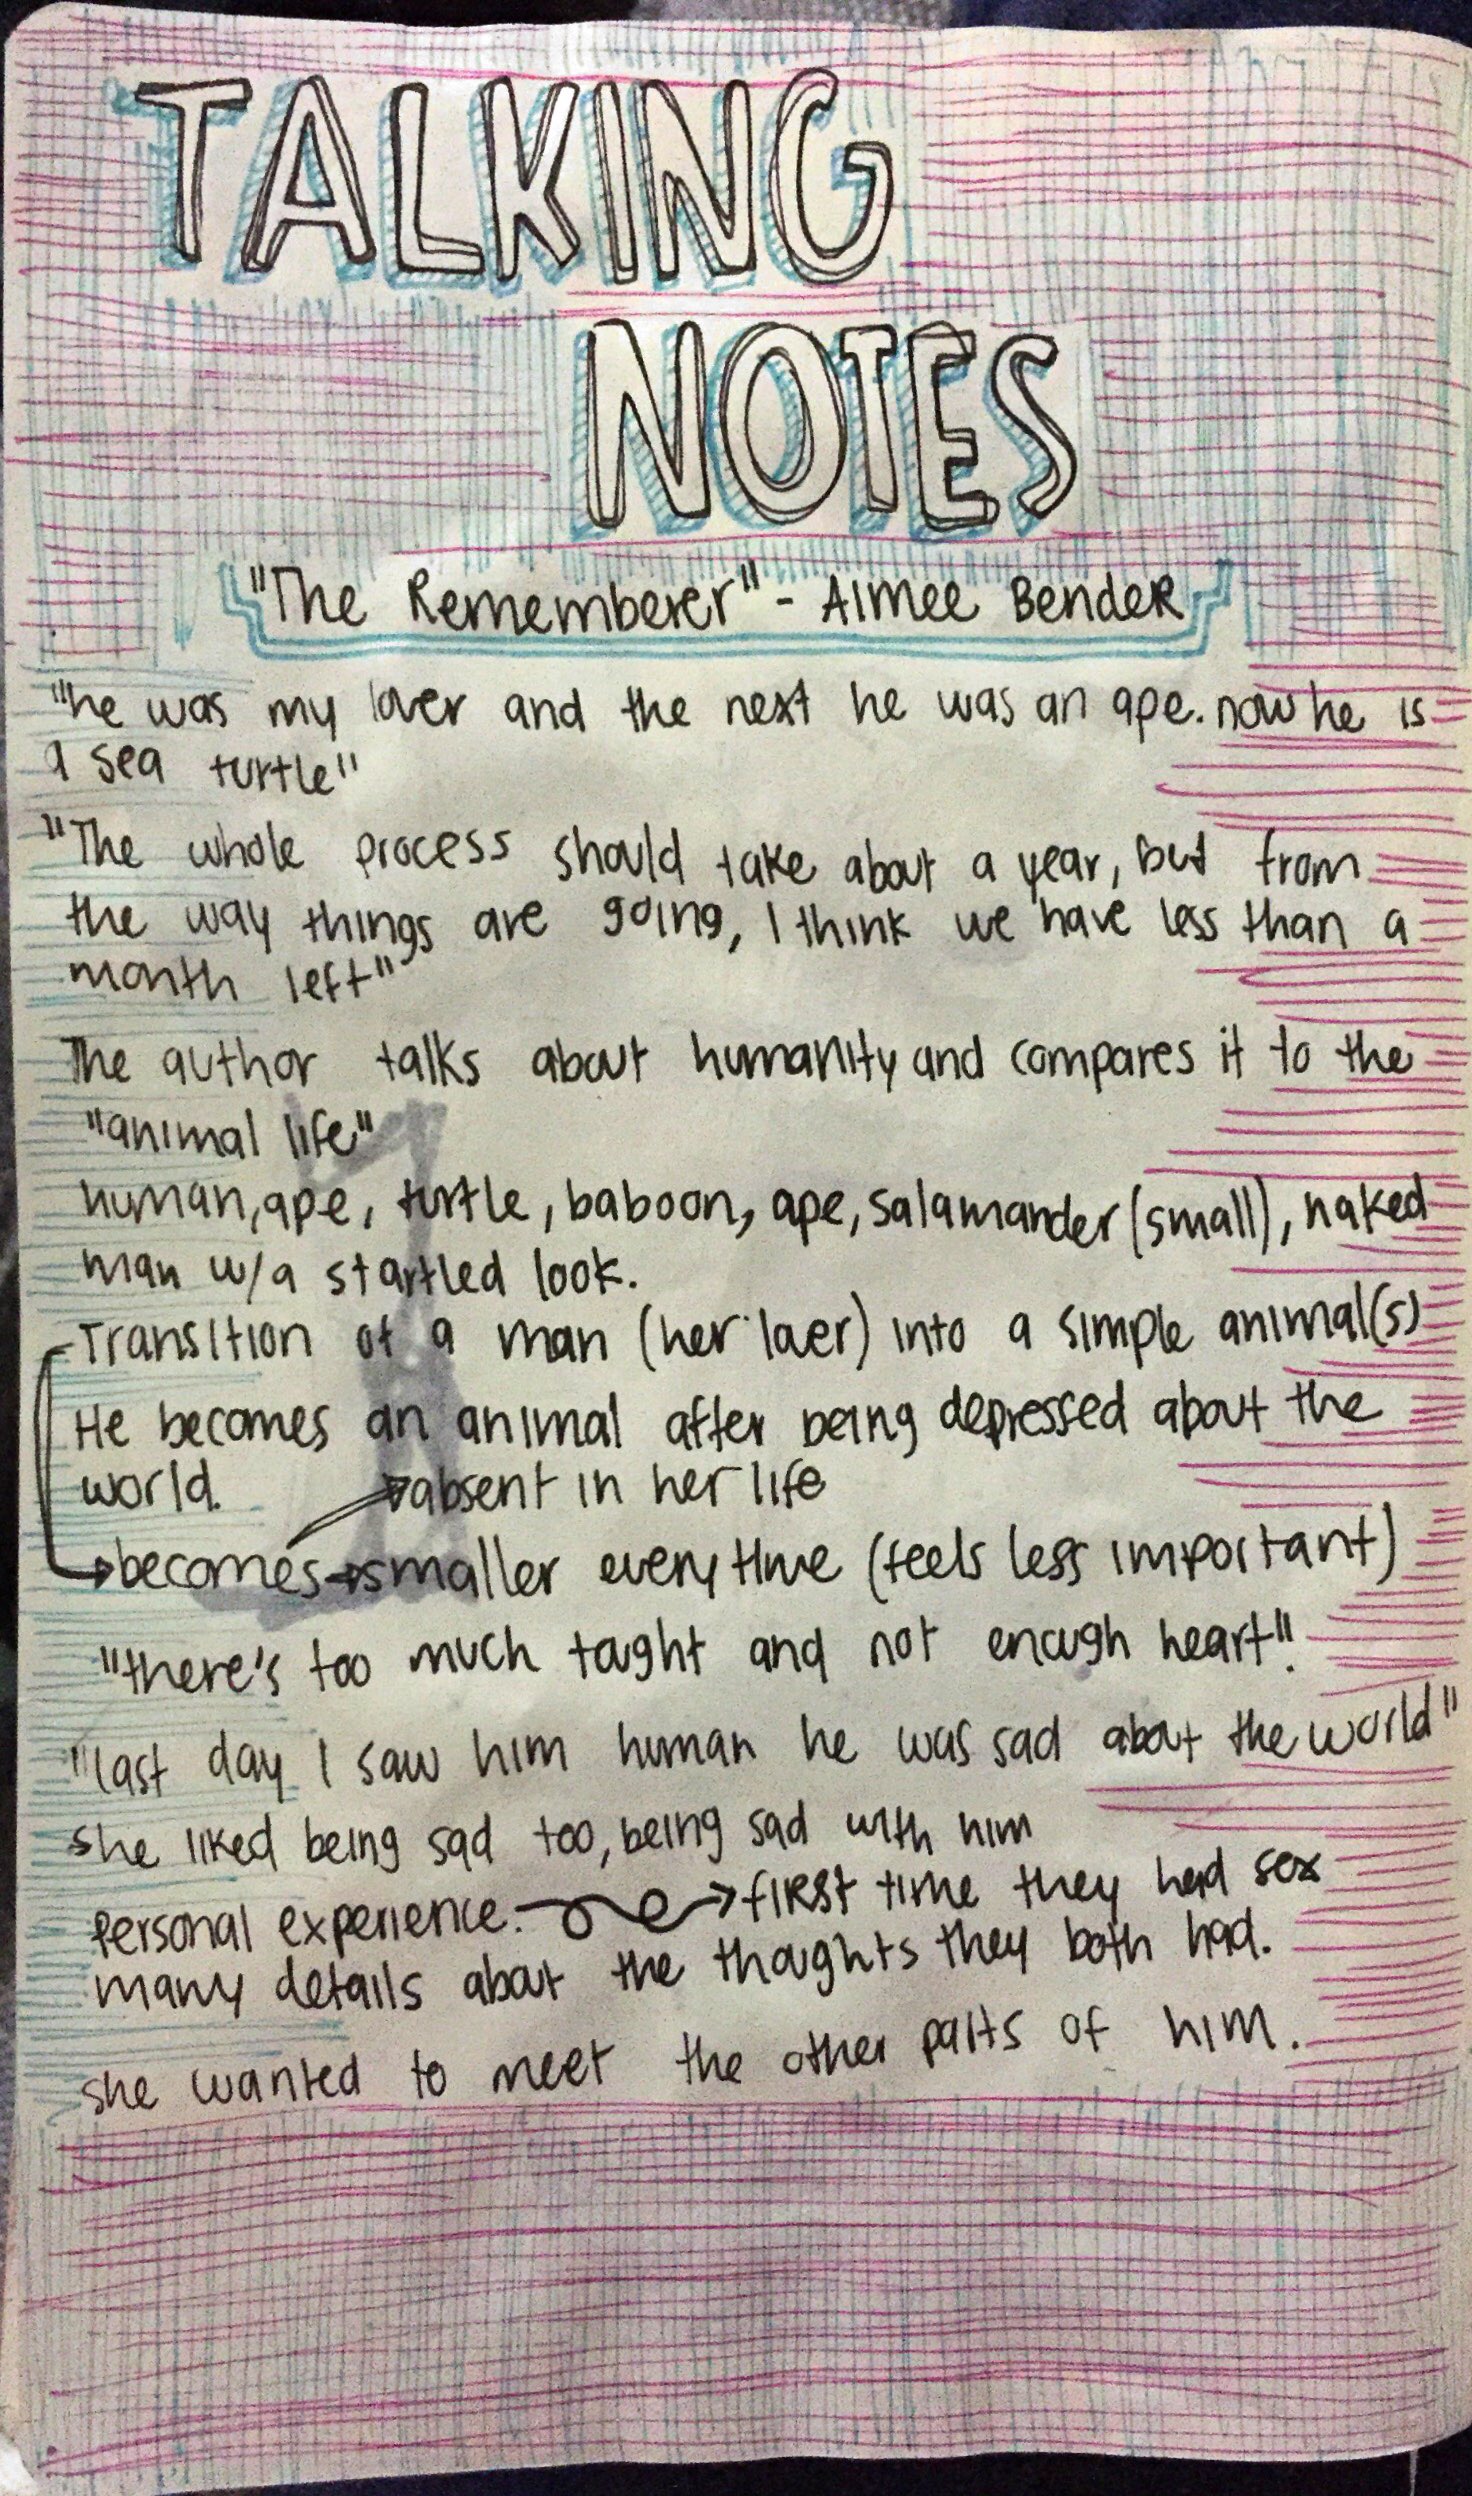 TALKING
NOTES
"The Rememberer" - Aimee Bender
"he was my lover and the next he was an ape. now he is
a sea turtle"
"The whole process should take about a year, but from
the way things are going, I think we have less than a
month left"
The author talks about humanity and compares it to the
"animal life"
human, ape, turtle, baboon, ape, salamander (small), naked
man w/a startled look.
Transition of a man (her lover) into a simple animal(s)
He becomes an animal after being depressed about the
world.
absent in her life
becomes smaller every time (feels less important)
"there's too much taught and not enough heart".
"last day I saw him human he was sad about the world"
she liked being sad too, being sad with him
Personal experience. first time they had sex
many details about the thoughts they both had.
she wanted to meet the other parts of him.